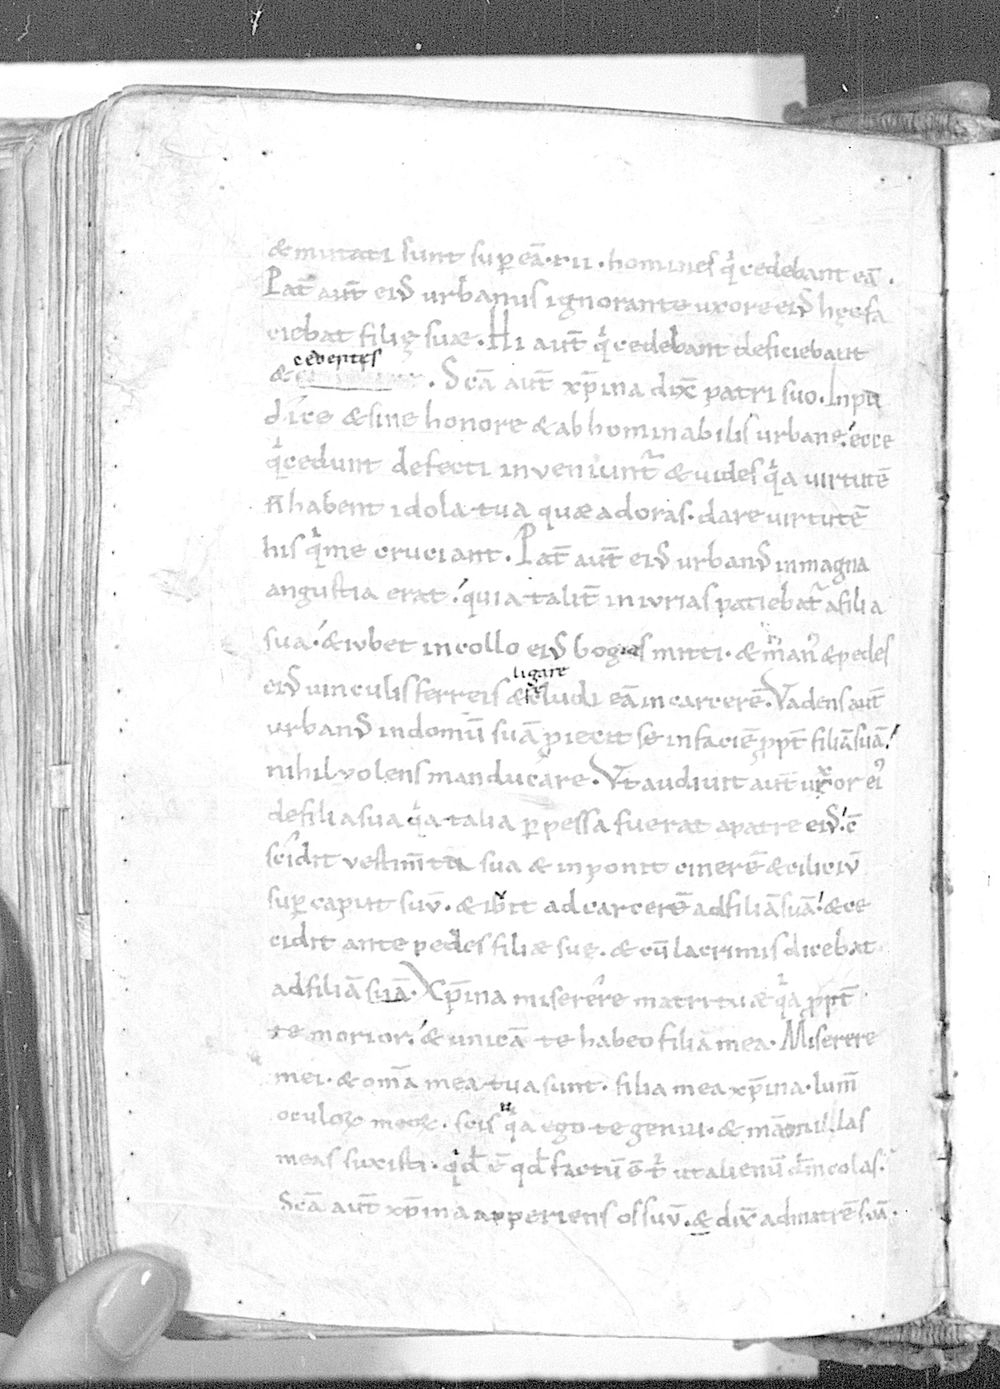 & mutati sunt sup eā · xii · homines q̇ cedebant eā ·
Pat̄ aut̄ eiꝰ urbanus ignorante uxore eiꝰ hęc fa
ciebat filię suæ · Hi aut̄ q̇ cedebant deficiebant
cedentes
& · Scā aut̄ xp̄ina dix̄ patri suo · Inpu
dice & sine honore & abhominabilis urbane · ecce
q̇ cedunt defecti inveniunt̄ & uides q̇a virtutē
n̄ habent idola tua quæ adoras · dare virtutē
his q̇ me cruciant · Pat̄ aut̄ eiꝰ urbanꝰ in magna
angustia erat · quia talit̄ iniurias patiebat̄ a filia
sua · & iubet in collo eiꝰ bogias mitti · & man᾽ & pedes
ligare
eiꝰ vinculis ferreis & cludi eā in carcerē · Vadens aut̄
urbanꝰ in domū suā piecit se in faciē ppt̄ filiā suā
nihil volens manducare · Vt audiuit aut̄ uxor ei᾽
de filia sua q̇a talia ppessa fuerat a patre eiꝰ · c̄
scidit vestim̄ta sua & inponit cinerē & ciliciū
sup caput suū · & ibit ad carcerē ad filiā suā · & ce
cidit ante pedes filiæ suę · & cū lacrimis dicebat
ad filiā suā · Xp̄ina miserere matri tuæ q̇a ppt̄
te morior · & unicā te habeo filiā mea · Miserere
mei · & om̄a mea tua sunt · filia mea xp̄ina · lum̄
oculoꝝ meoꝝ · scis q̇a ego te genui · & mamillas
meas suxisti · qd̄ ē qd̄ factū ē t̄ ut alienū dm̄ colas ·
Scā aut̄ xp̄ina apperiens os suū · & dix̄ ad matrē suā ·